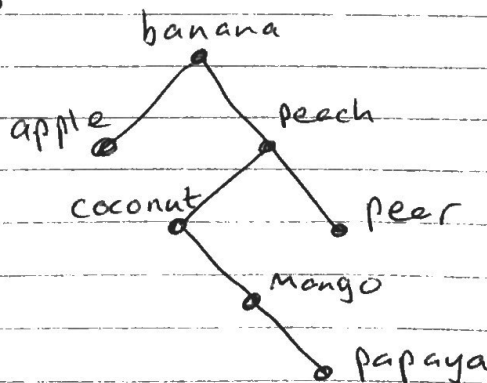 banana
apple
peach
coconut
pear
Mango
papaya